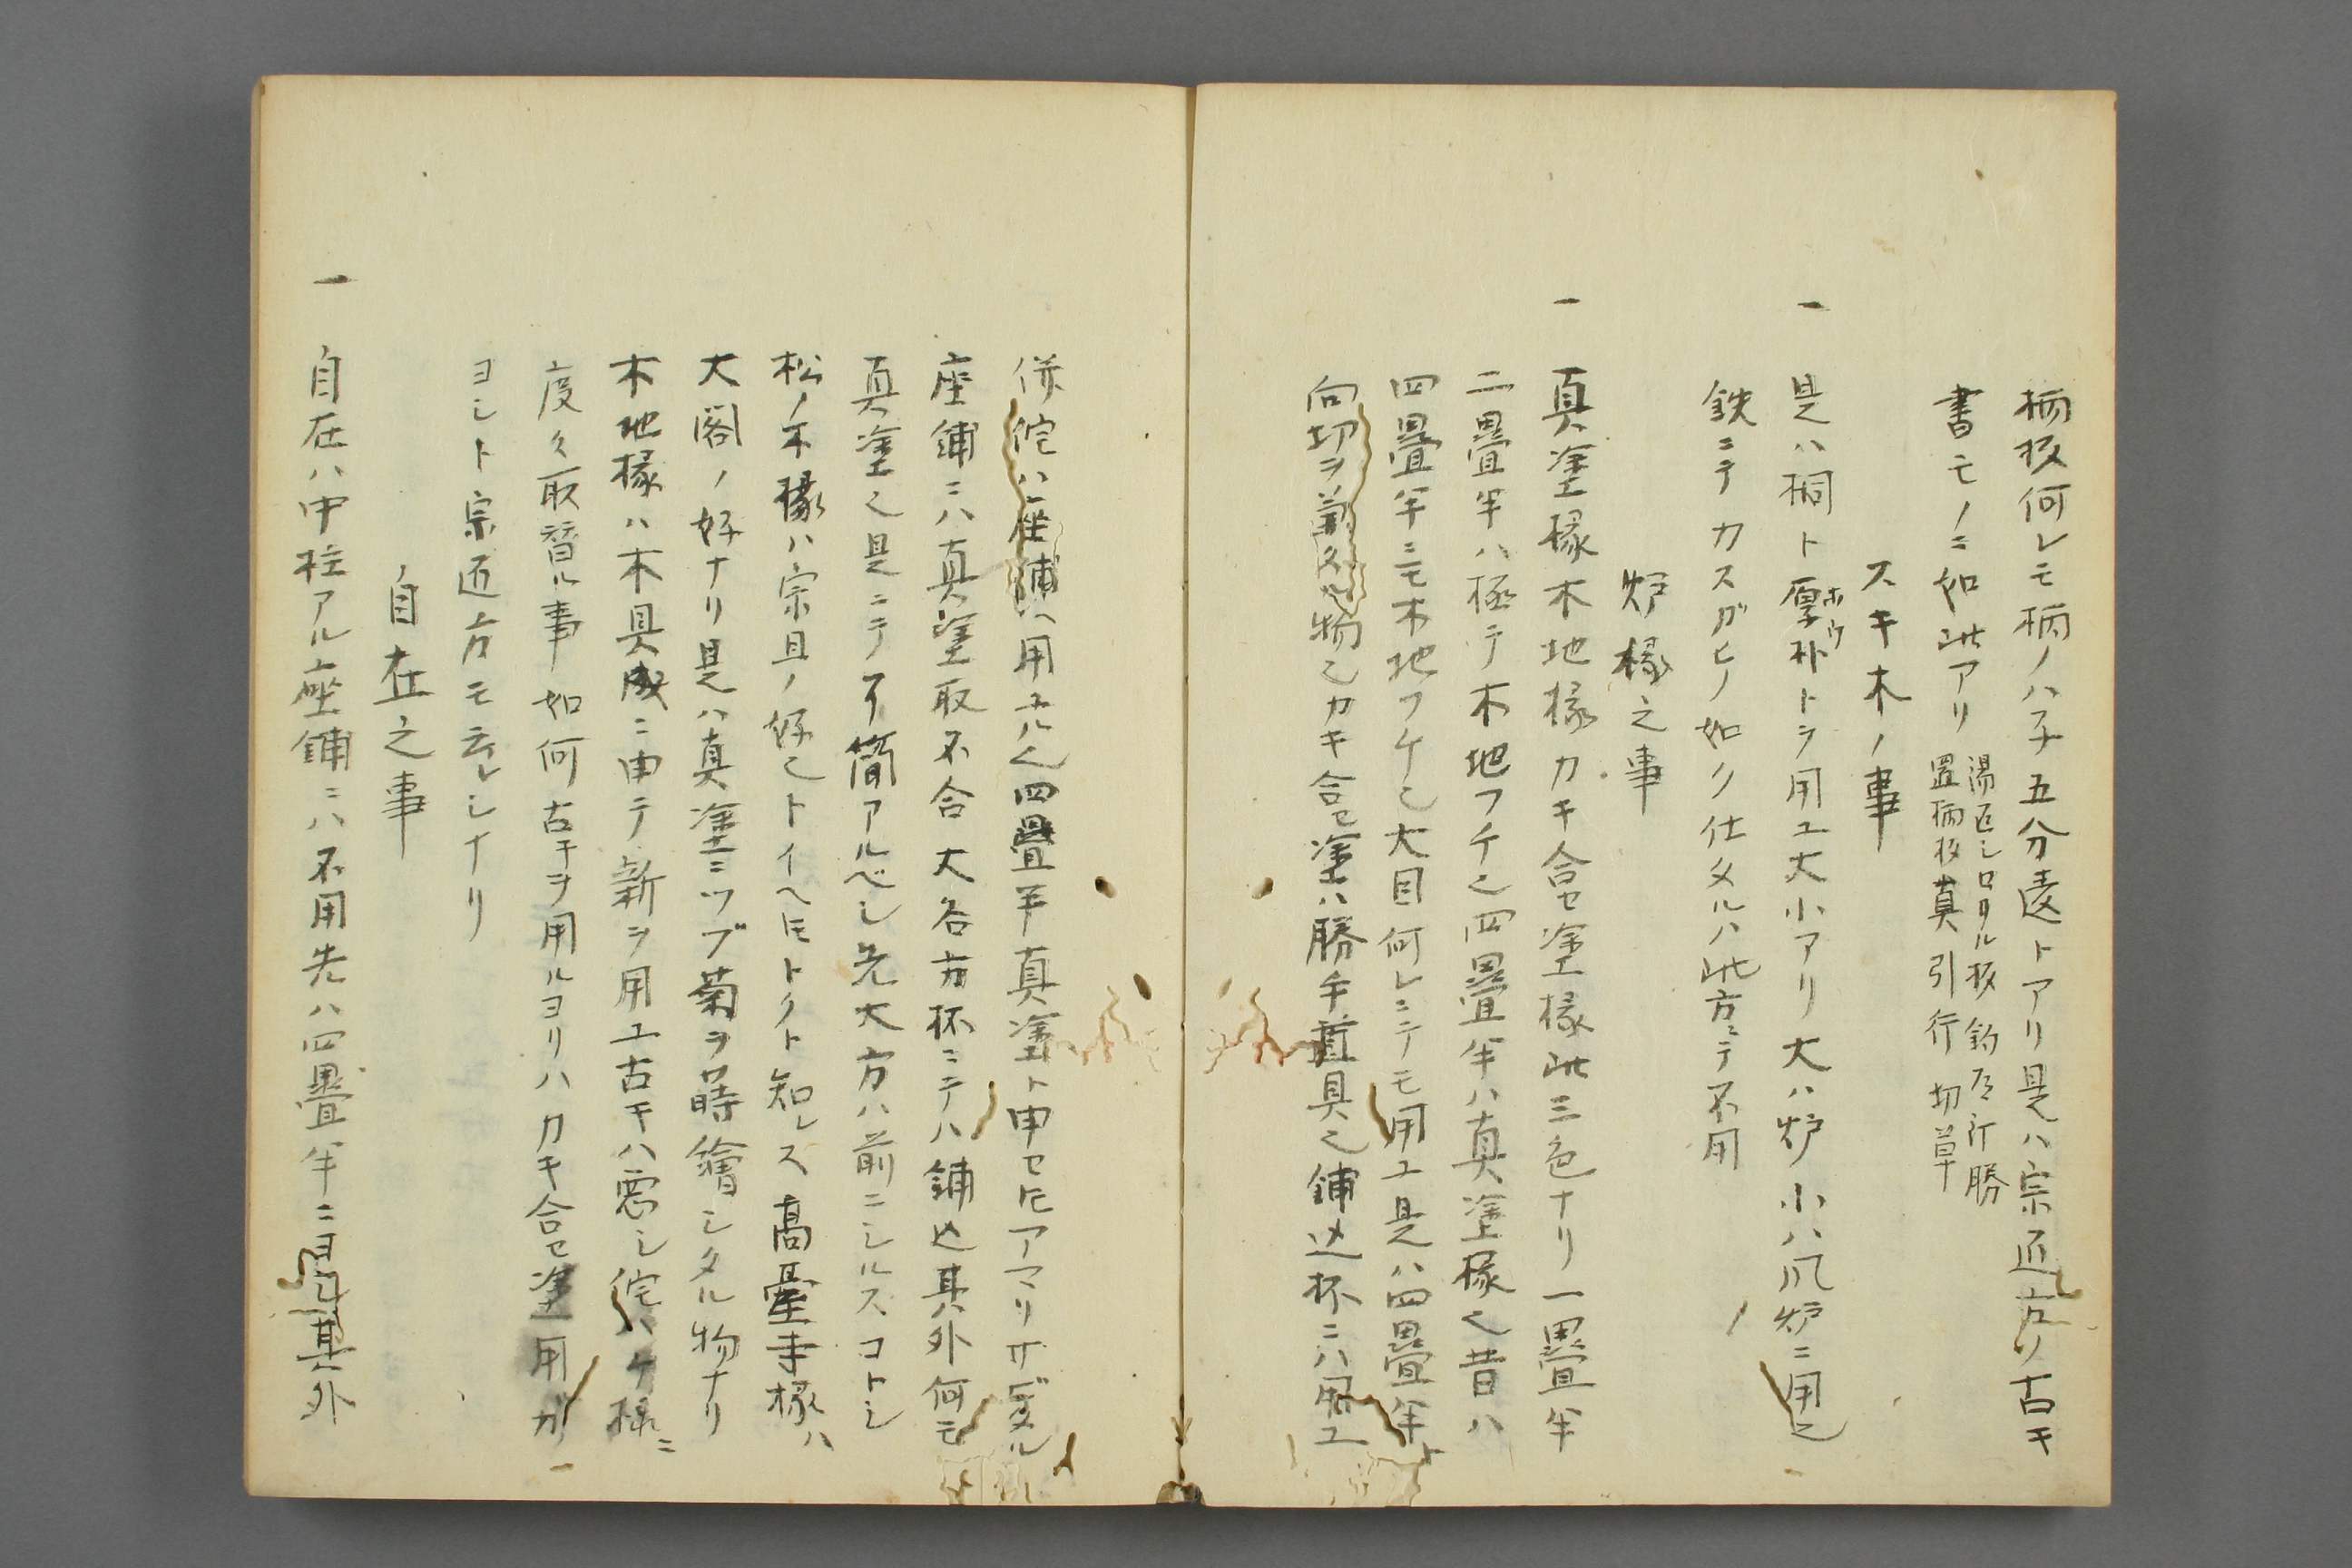 柄扱何レモ柄ノハ子五分遠トアリ是ハ宗近方リ古キ
書モノニ如此アリ
湯返シロリル扱 釣 汁勝
置柄扱真 引行 切草
スキ木ノ事
一 是ハ桐ト厚朴トヲ用ユ大小アリ大ハ炉小ハ風炉ニ用之
ホウ
鉄ニテカスガヒノ如ク仕タルハ此方ニテ不用
炉椽之事
一 真塗椽木地椽カキ合セ塗椽此三色ナリ一畳半
二畳半ハ極テ木地フチ也四畳半ハ真塗椽也昔ハ
四畳半ニモ木地フケ也大目何レニテモ用ユ是ハ四畳半ト
向切ヲ兼タル物也カキ合セ塗ハ勝手道具也鋪込杯ニハ用ユ
併侘ハ座鋪ハ用ユル也四畳半真塗ト申セ𪜈アマリサビタル
座鋪ニハ真塗取不合大名方杯ニテハ鋪込其外何モ
真塗也是ニテ了簡アルベシ先大方ハ前ニシルスコトシ
松ノ木椽ハ宗旦ノ好也トイヘ𪜈トクト知レス高臺寺椽ハ
大閤ノ好ナリ是ハ真塗ニツブ菊ヲ蒔繪シタル物ナリ
木地椽ハ木具成ニ申テ新ヲ用ユ古キハ悪シ侘ハケ様ニ
度々取替ル事如何古キヲ用ルヨリハカキ合セ塗用ガ
ヨシト宗近方モ云レシナリ
自在之事
一 自在ハ中柱アル座鋪ニハ不用先ハ四畳半ニヨ其外